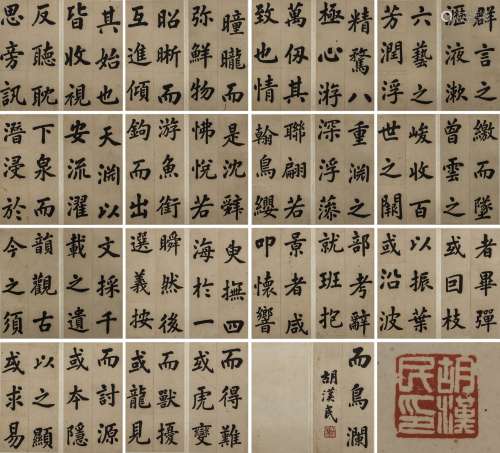 其始也
皆收視
反聽耽
思旁訊
精騖八
極心游
萬仞其
致也情
曈曨而
彌鮮物
昭晰而
互進傾
群言之
瀝液漱
六藝之
芳潤浮
天淵以
安流濯
下泉而
潛浸於
是沈辭
怫悅若
游魚銜
鉤而出
重淵之
深浮藻
聯翩若
翰鳥纓
繳而墜
曾雲之
峻收百
世之闕
文採千
載之遺
韻觀古
今之須
臾撫四
海於一
瞬然後
選義按
部考辭
就班抱
景者咸
叩懷響
者畢彈
或回枝
以振葉
或沿波
而討源
或本隱
以之顯
或求易
而得難
或虎變
而獸擾
或龍見
而鳥瀾
胡漢民
胡漢民印